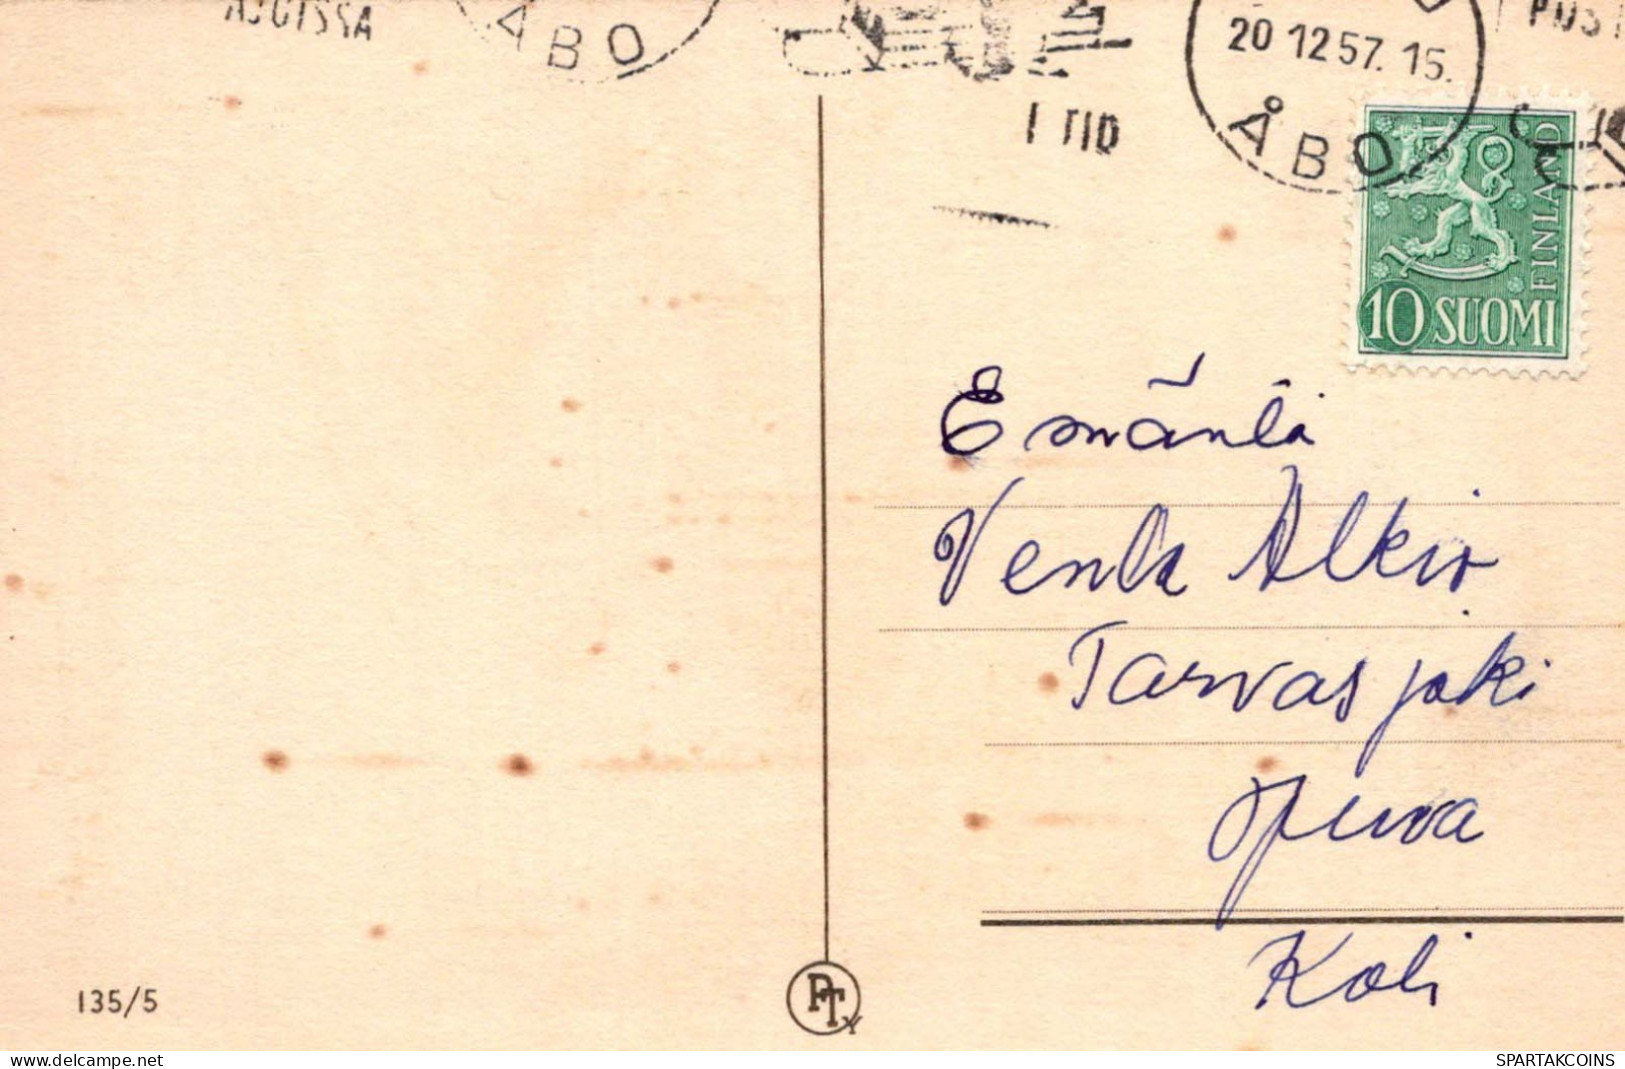 AJOISSA
ÅBO
I TID
20 12 57. 15.
ÅBO
POST
FINLAND
10 SUOMI
Emäntä
Venla Alkio
Tarvasjoki
Juva
Koli
135/5
PTY
delcampe.net
SPARTAKCOINS